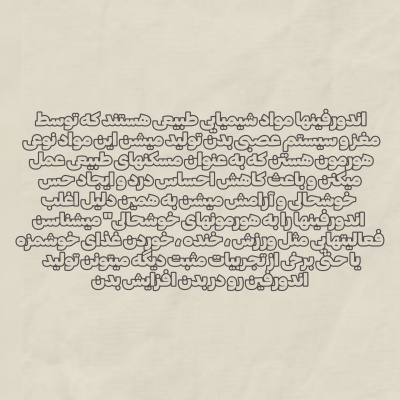 اندورفینها مواد شیمیایی طبیعی هستند که توسط
مغز و سیستم عصبی بدن تولید میشن این مواد نوعی
هورمون هستن که به عنوان مسکنهای طبیعی عمل
میکنن و باعث کاهش احساس درد و ایجاد حس
خوشحال و آرامش میشن به همین دلیل اغلب
اندورفینها را به هورمونهای خوشحال" میشناسن
فعالیتهایی مثل ورزش ، خنده ، خوردن غذای خوشمزه
یا حتی برخی از تجربیات مثبت دیگه میتونن تولید
اندورفین رو در بدن افزایش بدن